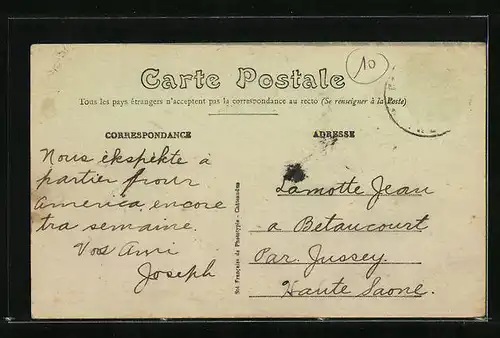 10
Carte Postale
Tous les pays étrangers n'acceptent pas la correspondance au recto (Se renseigner à la Poste)
CORRESPONDANCE
ADRESSE
Nous ekspekte à
partier frour
America, encore
tra semaine.
Vos Ami
Joseph
Lamotte Jean
a Betaucourt
Par. Jussey.
Haute Saone.
Sté Française de Phototypie - Coulommiers